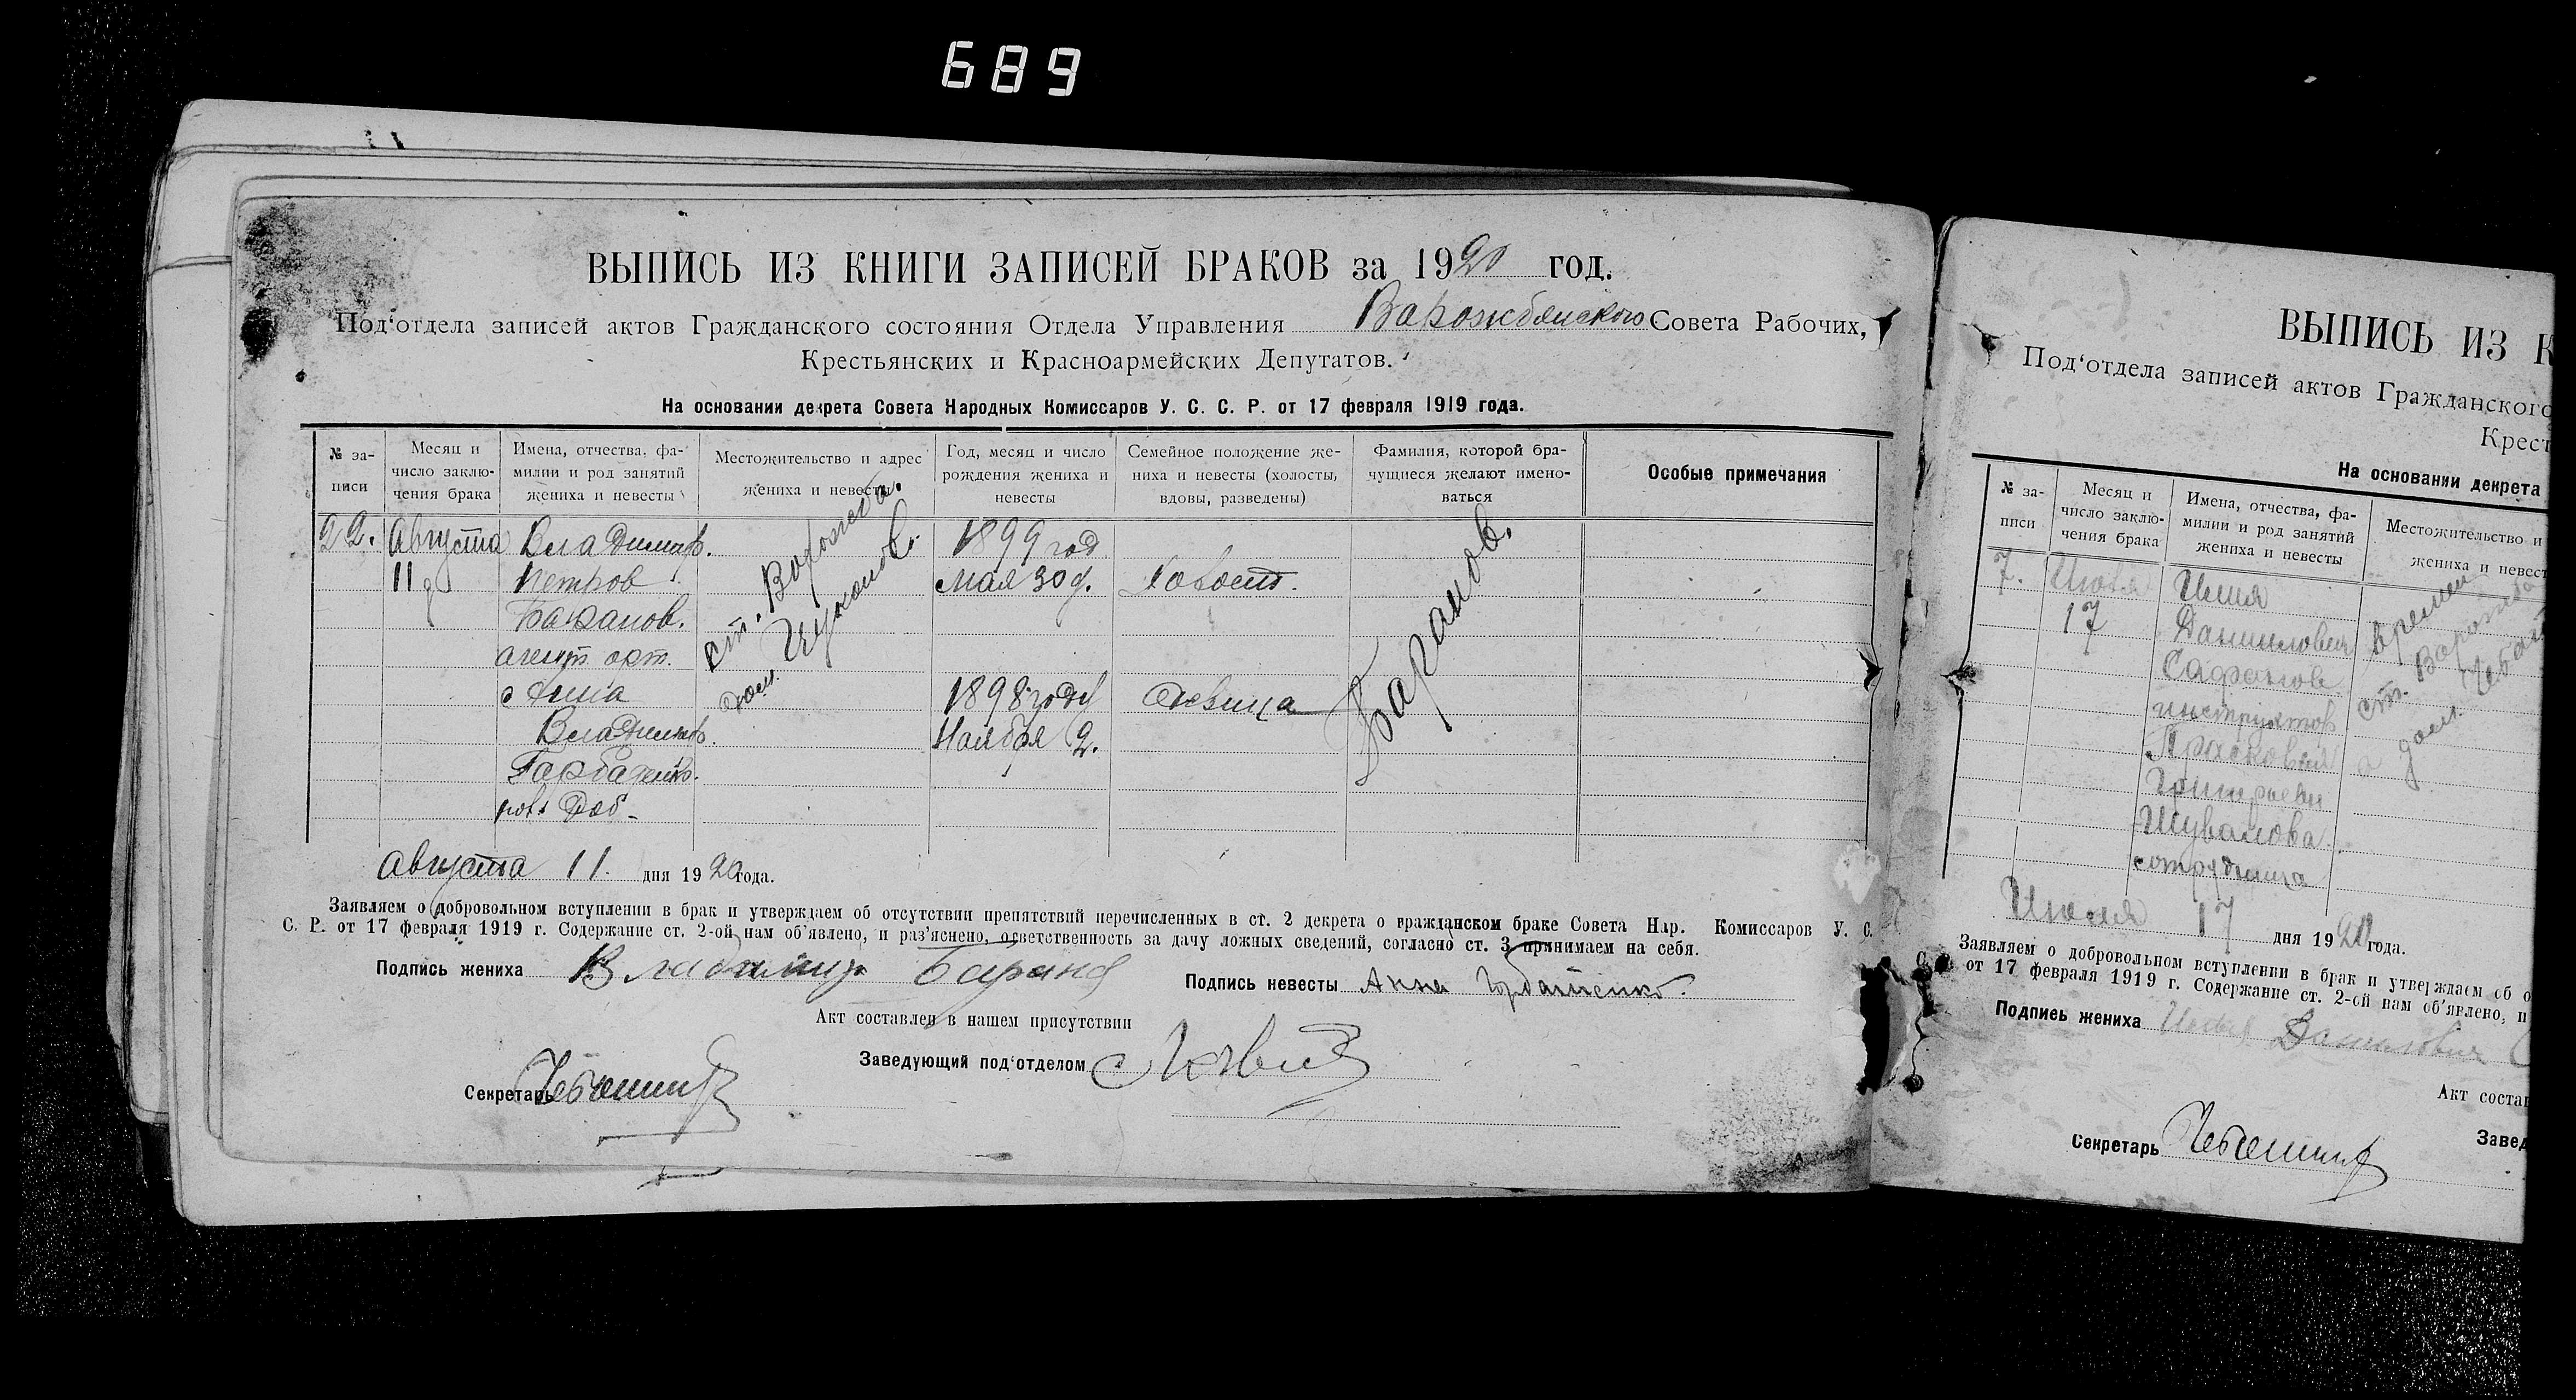 689
ВЫПИСЬ ИЗ КНИГИ ЗАПИСЕЙ БРАКОВ за 1920 год.
Под‘отдела записей актов Гражданского состояния Отдела Управления Ворожбянского Совета Рабочих,
Крестьянских и Красноармейских Депутатов.
На основании декрета Совета Народных Комиссаров У. С. С. Р. от 17 февраля 1919 года.
№ за-
писи
Месяц и
число заклю-
чения брака
Имена, отчества, фа-
милии и род занятий
жениха и невесты
Местожительство и адрес
жениха и невесты
Год, месяц и число
рождения жениха и
невесты
Семейное положение же-
ниха и невесты (холосты,
вдовы, разведены)
Фамилия, которой бра-
чущиеся желают имено-
ваться
Особые примечания
22.
Августа
11
Владимир.
Петров
Баранов.
агент
с Анна
Владимир.
ст. Ворожба.
дом.
1899 год
мая 30
Холост.
1898 году
Ноября 2.
девица
Баранов.
Августа 11. дня 1920 года.
Заявляем о добровольном вступлении в брак и утверждаем об отсутствии препятствий перечисленных в ст. 2 декрета о гражданском браке Совета Нар. Комиссаров У. С.
С. Р. от 17 февраля 1919 г. Содержание ст. 2-ой нам об‘явлено, и раз‘яснено, ответственность за дачу ложных сведений, согласно ст. 3 принимаем на себя.
Подпись жениха Владимир Баранов
Подпись невесты Анна
Акт составлен в нашем присутствии
Заведующий под‘отделом
Секретарь
ВЫПИСЬ ИЗ К
Под‘отдела записей актов Гражданского
Крест
На основании декрета
№ за-
писи
Месяц и
число заклю-
чения брака
Имена, отчества, фа-
милии и род занятий
жениха и невесты
Местожительство и
жениха и невест
7.
Июля
17
Илия
Данилович
Сафонов
инструктор
Прасковья
Григорьевн
Шувалова
сотрудница
времен
ст. Ворожба
дом.
Июля 17 дня 1920 года.
Заявляем о добровольном вступлении в брак и утверждаем об о
С. Р. от 17 февраля 1919 г. Содержание ст. 2-ой нам об‘явлено, и
Подпись жениха Данилович
Акт состав
Завед
Секретарь